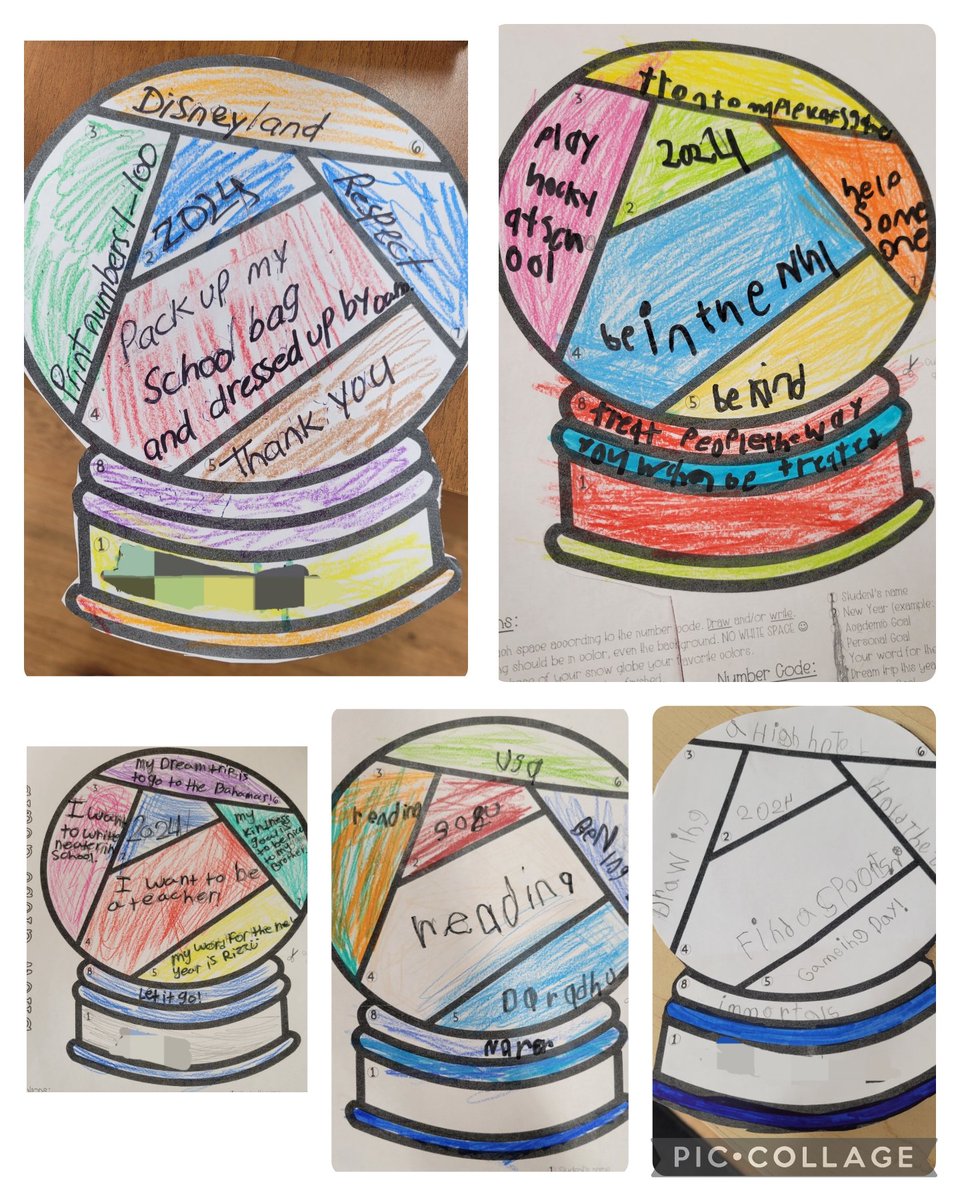 Disneyland
6
3
Print numbers 1_100
2024
2
Respect
7
Pack up my
School bag
and dressed up by
4
Thank you
5
8
1
3
play
hocky
atscho
ool
2024
2
help
Some
one
7
be in the Nhl
4
5
be kind
8
treat people the way
you
be treated
1
ns:
ach space according to the number code. Draw and/or write.
should be in color, even the background. NO WHITE SPACE
of your snow globe your favorite colors.
Number Code:
1 Student's name
2 New Year (example:
Academic Goal
Personal Goal
Your word for the
Dream trip this year
my Dream trip is
to go to the Bahamas!
6
3
I want
to write
neater in
School!
2024
2
my
kindness
goal is
to be nice
to my
Brother
I want to be
a teacher!
4
my word for the new
year is Rizz
5
8
Let it go!
1
USA
6
3
reading
2
reading
4
5
8
1
1 Student's name
a High hotel
6
3
Drawing
2024
2
Find a Spoon
4
Gameing Day!
5
8
immortals
1
PIC•COLLAGE